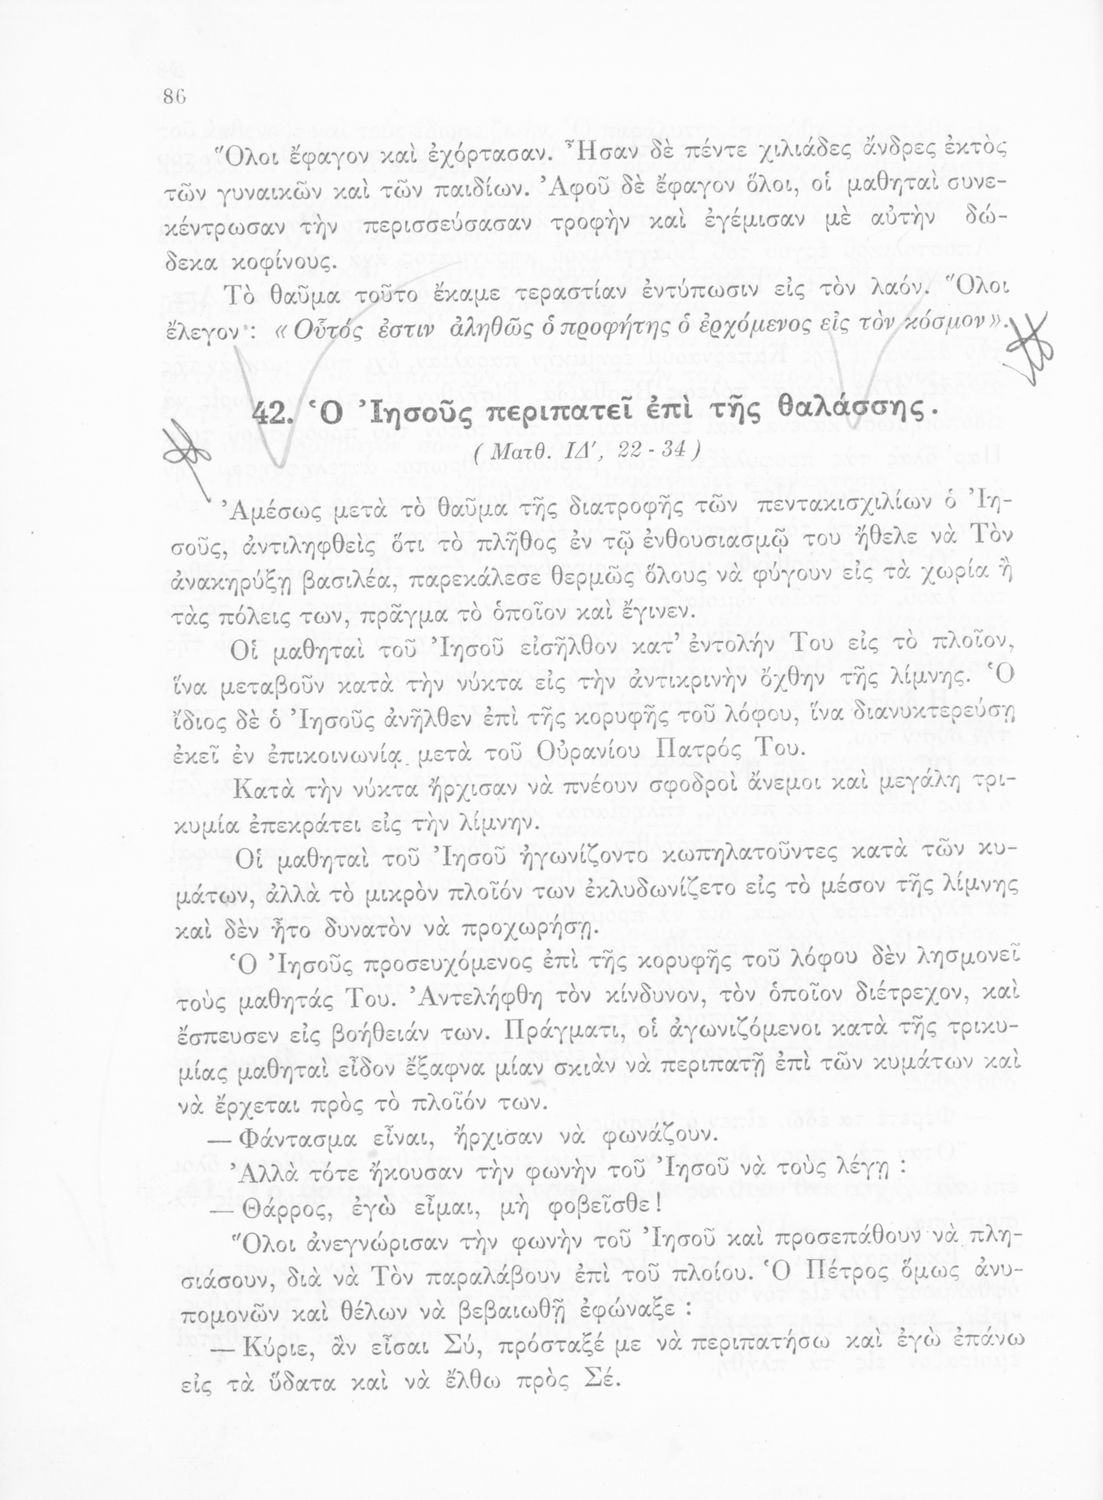 86
Ὅλοι ἔφαγον καὶ ἐχόρτασαν. Ἦσαν δὲ πέντε χιλιάδες ἄνδρες ἐκτὸς
τῶν γυναικῶν καὶ τῶν παιδίων. Ἀφοῦ δὲ ἔφαγον ὅλοι, οἱ μαθηταὶ συνε-
κέντρωσαν τὴν περισσεύσασαν τροφὴν καὶ ἐγέμισαν μὲ αὐτὴν δώ-
δεκα κοφίνους.
Τὸ θαῦμα τοῦτο ἔκαμε τεραστίαν ἐντύπωσιν εἰς τὸν λαόν. Ὅλοι
ἔλεγον : «Οὗτός ἐστιν ἀληθῶς ὁ προφήτης ὁ ἐρχόμενος εἰς τὸν κόσμον».
42. Ὁ Ἰησοῦς περιπατεῖ ἐπὶ τῆς θαλάσσης.
(Ματθ. ΙΔ', 22 - 34)
Ἀμέσως μετὰ τὸ θαῦμα τῆς διατροφῆς τῶν πεντακισχιλίων ὁ Ἰη-
σοῦς, ἀντιληφθεὶς ὅτι τὸ πλῆθος ἐν τῷ ἐνθουσιασμῷ του ἤθελε νὰ Τὸν
ἀνακηρύξῃ βασιλέα, παρεκάλεσε θερμῶς ὅλους νὰ φύγουν εἰς τὰ χωρία ἢ
τὰς πόλεις των, πρᾶγμα τὸ ὁποῖον καὶ ἔγινεν.
Οἱ μαθηταὶ τοῦ Ἰησοῦ εἰσῆλθον κατ' ἐντολήν Του εἰς τὸ πλοῖον,
ἵνα μεταβοῦν κατὰ τὴν νύκτα εἰς τὴν ἀντικρινὴν ὄχθην τῆς λίμνης. Ὁ
ἴδιος δὲ ὁ Ἰησοῦς ἀνῆλθεν ἐπὶ τῆς κορυφῆς τοῦ λόφου, ἵνα διανυκτερεύσῃ
ἐκεῖ ἐν ἐπικοινωνίᾳ μετὰ τοῦ Οὐρανίου Πατρός Του.
Κατὰ τὴν νύκτα ἤρχισαν νὰ πνέουν σφοδροὶ ἄνεμοι καὶ μεγάλη τρι-
κυμία ἐπεκράτει εἰς τὴν λίμνην.
Οἱ μαθηταὶ τοῦ Ἰησοῦ ἠγωνίζοντο κωπηλατοῦντες κατὰ τῶν κυ-
μάτων, ἀλλὰ τὸ μικρὸν πλοῖόν των ἐκλυδωνίζετο εἰς τὸ μέσον τῆς λίμνης
καὶ δὲν ἦτο δυνατὸν νὰ προχωρήσῃ.
Ὁ Ἰησοῦς προσευχόμενος ἐπὶ τῆς κορυφῆς τοῦ λόφου δὲν λησμονεῖ
τοὺς μαθητάς Του. Ἀντελήφθη τὸν κίνδυνον, τὸν ὁποῖον διέτρεχον, καὶ
ἔσπευσεν εἰς βοήθειάν των. Πράγματι, οἱ ἀγωνιζόμενοι κατὰ τῆς τρικυ-
μίας μαθηταὶ εἶδον ἔξαφνα μίαν σκιὰν νὰ περιπατῇ ἐπὶ τῶν κυμάτων καὶ
νὰ ἔρχεται πρὸς τὸ πλοῖόν των.
— Φάντασμα εἶναι, ἤρχισαν νὰ φωνάζουν.
Ἀλλὰ τότε ἤκουσαν τὴν φωνὴν τοῦ Ἰησοῦ νὰ τοὺς λέγῃ :
— Θάρρος, ἐγὼ εἶμαι, μὴ φοβεῖσθε!
Ὅλοι ἀνεγνώρισαν τὴν φωνὴν τοῦ Ἰησοῦ καὶ προσεπάθουν νὰ πλη-
σιάσουν, διὰ νὰ Τὸν παραλάβουν ἐπὶ τοῦ πλοίου. Ὁ Πέτρος ὅμως ἀνυ-
πομονῶν καὶ θέλων νὰ βεβαιωθῇ ἐφώναξε :
— Κύριε, ἂν εἶσαι Σύ, πρόσταξέ με νὰ περιπατήσω καὶ ἐγὼ ἐπάνω
εἰς τὰ ὕδατα καὶ νὰ ἔλθω πρὸς Σέ.